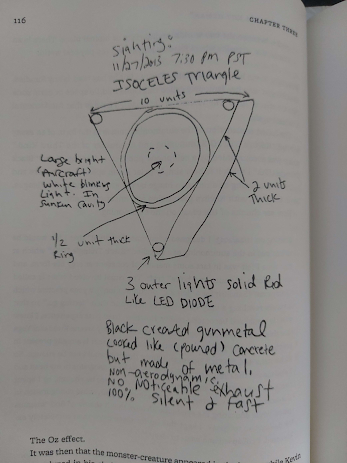 116
CHAPTER THREE
Sighting:
11/27/2013 7:30 PM PST
ISOCELES Triangle
10 units
Large bright
(Aircraft)
white blinking
Light. In
Sunken Cavity
2 units
Thick
1/2 unit thick
Ring
3 outer lights solid Red
Like LED DIODE
Black created gunmetal
looked like (poured) concrete
but made of metal,
Non-aerodynamic,
NO Noticeable exhaust
100% Silent & fast
The Oz effect.
It was then that the monster-creature